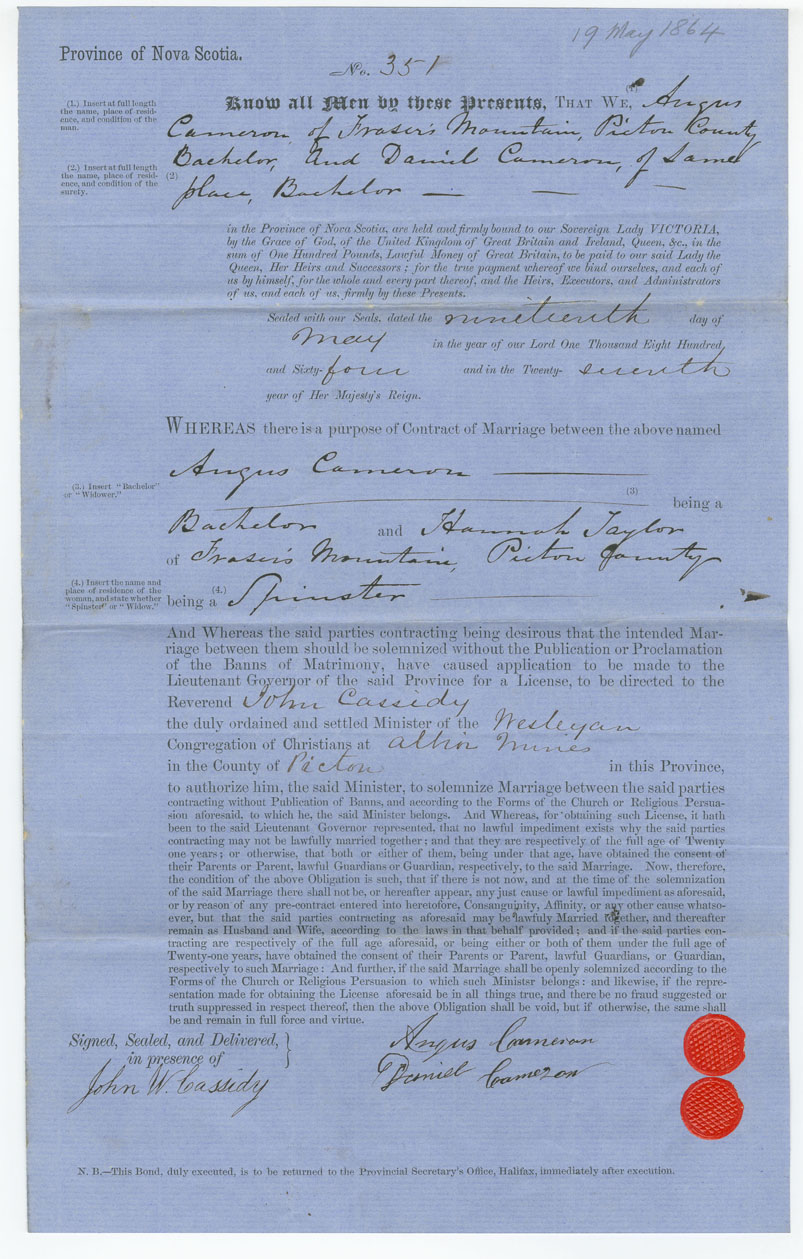 19 May 1864
Province of Nova Scotia.
No. 351
(1.) Insert at full length
the name, place of resid-
ence, and condition of the
man.
Know all Men by these Presents, THAT WE, (1) Angus
Cameron of Fraser's Mountain, Pictou County
Bachelor, And Daniel Cameron, of Same
(2.) Insert at full length
the name, place of resid-
ence, and condition of the
surety.
(2)
place, Bachelor — — —
in the Province of Nova Scotia, are held and firmly bound to our Sovereign Lady VICTORIA,
by the Grace of God, of the United Kingdom of Great Britain and Ireland, Queen, &c., in the
sum of One Hundred Pounds, Lawful Money of Great Britain, to be paid to our said Lady the
Queen, Her Heirs and Successors; for the true payment whereof we bind ourselves, and each of
us by himself, for the whole and every part thereof, and the Heirs, Executors, and Administrators
of us, and each of us, firmly by these Presents.
Sealed with our Seals, dated the nineteenth day of
May in the year of our Lord One Thousand Eight Hundred,
and Sixty-four and in the Twenty- seventh
year of Her Majesty's Reign.
WHEREAS there is a purpose of Contract of Marriage between the above named
Angus Cameron —
(3.) Insert "Bachelor"
or "Widower."
(3) being a
Bachelor and Hannah Taylor
of Fraser's Mountain, Pictou County
(4.) Insert the name and
place of residence of the
woman, and state whether
"Spinster" or "Widow."
being a (4.) Spinster
And Whereas the said parties contracting being desirous that the intended Mar-
riage between them should be solemnized without the Publication or Proclamation
of the Banns of Matrimony, have caused application to be made to the
Lieutenant Governor of the said Province for a License, to be directed to the
Reverend John Cassidy
the duly ordained and settled Minister of the Wesleyan
Congregation of Christians at Albion Mines
in the County of Pictou in this Province,
to authorize him, the said Minister, to solemnize Marriage between the said parties
contracting without Publication of Banns, and according to the Forms of the Church or Religious Persua-
sion aforesaid, to which he, the said Minister belongs. And Whereas, for obtaining such License, it hath
been to the said Lieutenant Governor represented, that no lawful impediment exists why the said parties
contracting may not be lawfully married together; and that they are respectively of the full age of Twenty
one years; or otherwise, that both or either of them, being under that age, have obtained the consent of
their Parents or Parent, lawful Guardians or Guardian, respectively, to the said Marriage. Now, therefore,
the condition of the above Obligation is such, that if there is not now, and at the time of the solemnization
of the said Marriage there shall not be, or hereafter appear, any just cause or lawful impediment as aforesaid,
or by reason of any pre-contract entered into heretofore, Consanguinity, Affinity, or any other cause whatso-
ever, but that the said parties contracting as aforesaid may be lawfuly Married together, and thereafter
remain as Husband and Wife, according to the laws in that behalf provided; and if the said parties con-
tracting are respectively of the full age aforesaid, or being either or both of them under the full age of
Twenty-one years, have obtained the consent of their Parents or Parent, lawful Guardians, or Guardian,
respectively to such Marriage: And further, if the said Marriage shall be openly solemnized according to the
Forms of the Church or Religious Persuasion to which such Ministsr belongs: and likewise, if the repre-
sentation made for obtaining the License aforesaid be in all things true, and there be no fraud suggested or
truth suppressed in respect thereof, then the above Obligation shall be void, but if otherwise, the same shall
be and remain in full force and virtue.
Signed, Sealed, and Delivered,
in presence of
John W. Cassidy
Angus Cameron
Daniel Cameron
N. B.—This Bond, duly executed, is to be returned to the Provincial Secretary's Office, Halifax, immediately after execution.